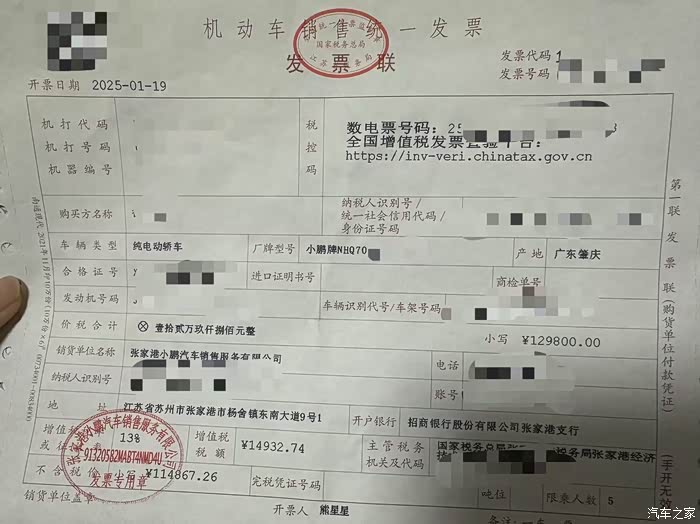 机动车销售统一发票
发票联
国家税务总局
发票代码 1
发票号码
开票日期 2025-01-19
机打代码
机打号码
机器编号
税控码
数电票号码: 25
全国增值税发票查验平台:
https://inv-veri.chinatax.gov.cn
购买方名称
纳税人识别号/
统一社会信用代码/
身份证号码
车辆类型 纯电动轿车 厂牌型号 小鹏牌NHQ70 产地 广东肇庆
合格证号 进口证明书号 商检单号
发动机号码 车辆识别代号/车架号码
价税合计 ⊗ 壹拾贰万玖仟捌佰元整 小写 ¥129800.00
销货单位名称 张家港小鹏汽车销售服务有限公司 电话
纳税人识别号 账号
地址 江苏省苏州市张家港市杨舍镇东南大道9号1 开户银行 招商银行股份有限公司张家港支行
增值税 13% 增值税税额 ¥14932.74 主管税务机关及代码 国家税务总局张 税务局张家港经济
不含税价 小写 ¥114867.26 完税凭证号码 吨位 限乘人数 5
销货单位盖章 开票人 熊星星
张家港小鹏汽车销售服务有限公司
91320582MABT4NMD4U
发票专用章
第一联 发票联(购货单位付款凭证)
(手开无效
汽车之家